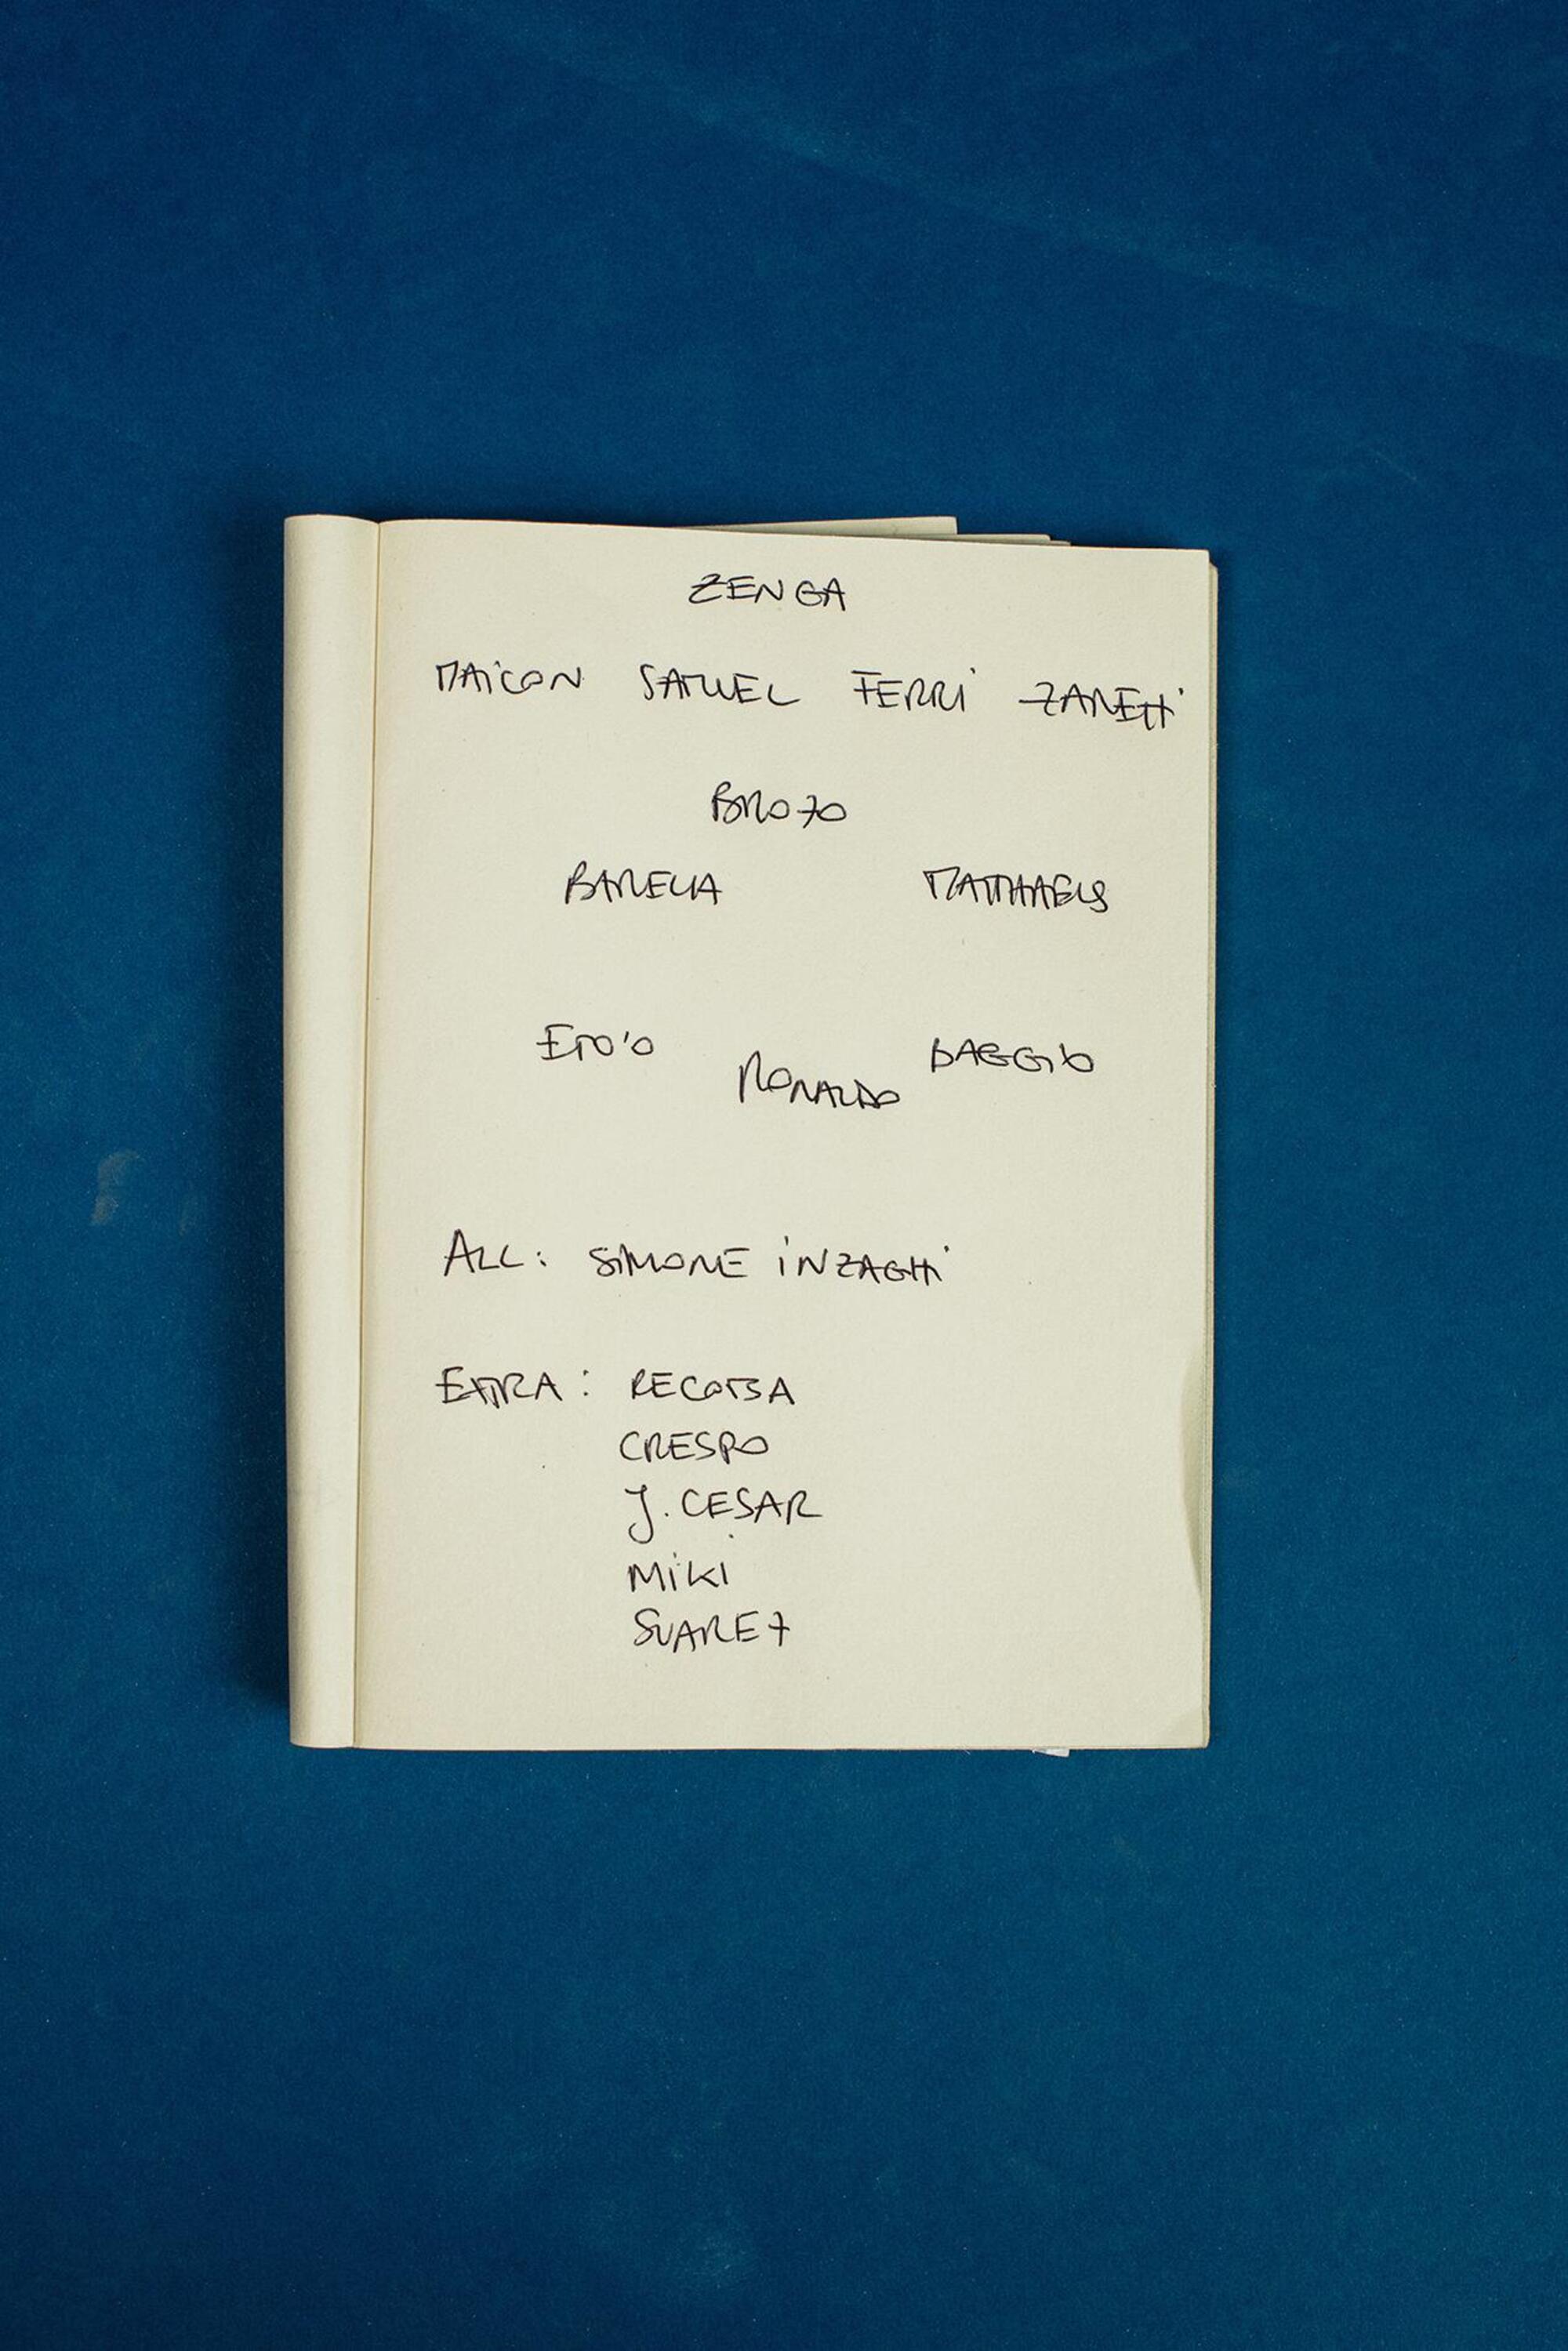 ZENGA
MAiCON SAMUEL FERRi ZANETTi
BROZO
BARELLA MATTHAEUS
ETO'O RONALDO BAGGIO
ALL: SiMONE iNZAGHi
EXTRA: RECOBA
CRESPO
J. CESAR
MiKi
SUAREZ